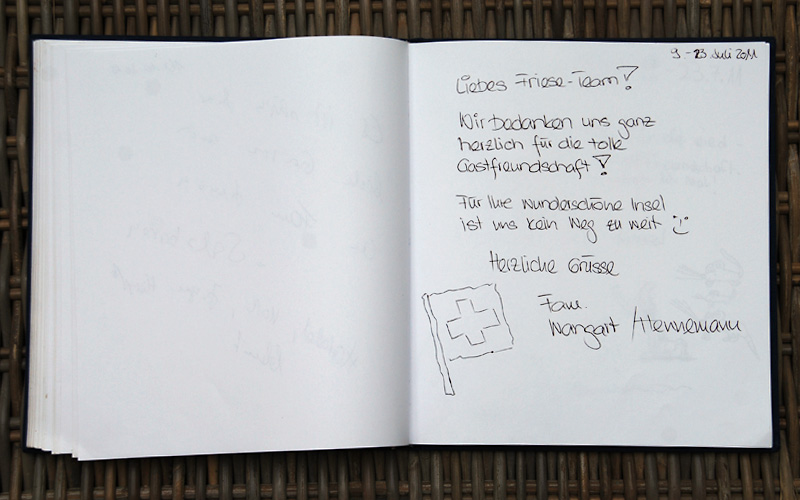 9 - 23 Juli 2011
Liebes Friese-Team!
Wir bedanken uns ganz
herzlich für die tolle
Gastfreundschaft!
Für Ihre wunderschöne Insel
ist uns kein Weg zu weit :)
Herzliche Grüsse
Fam.
Wangart / Hennemann